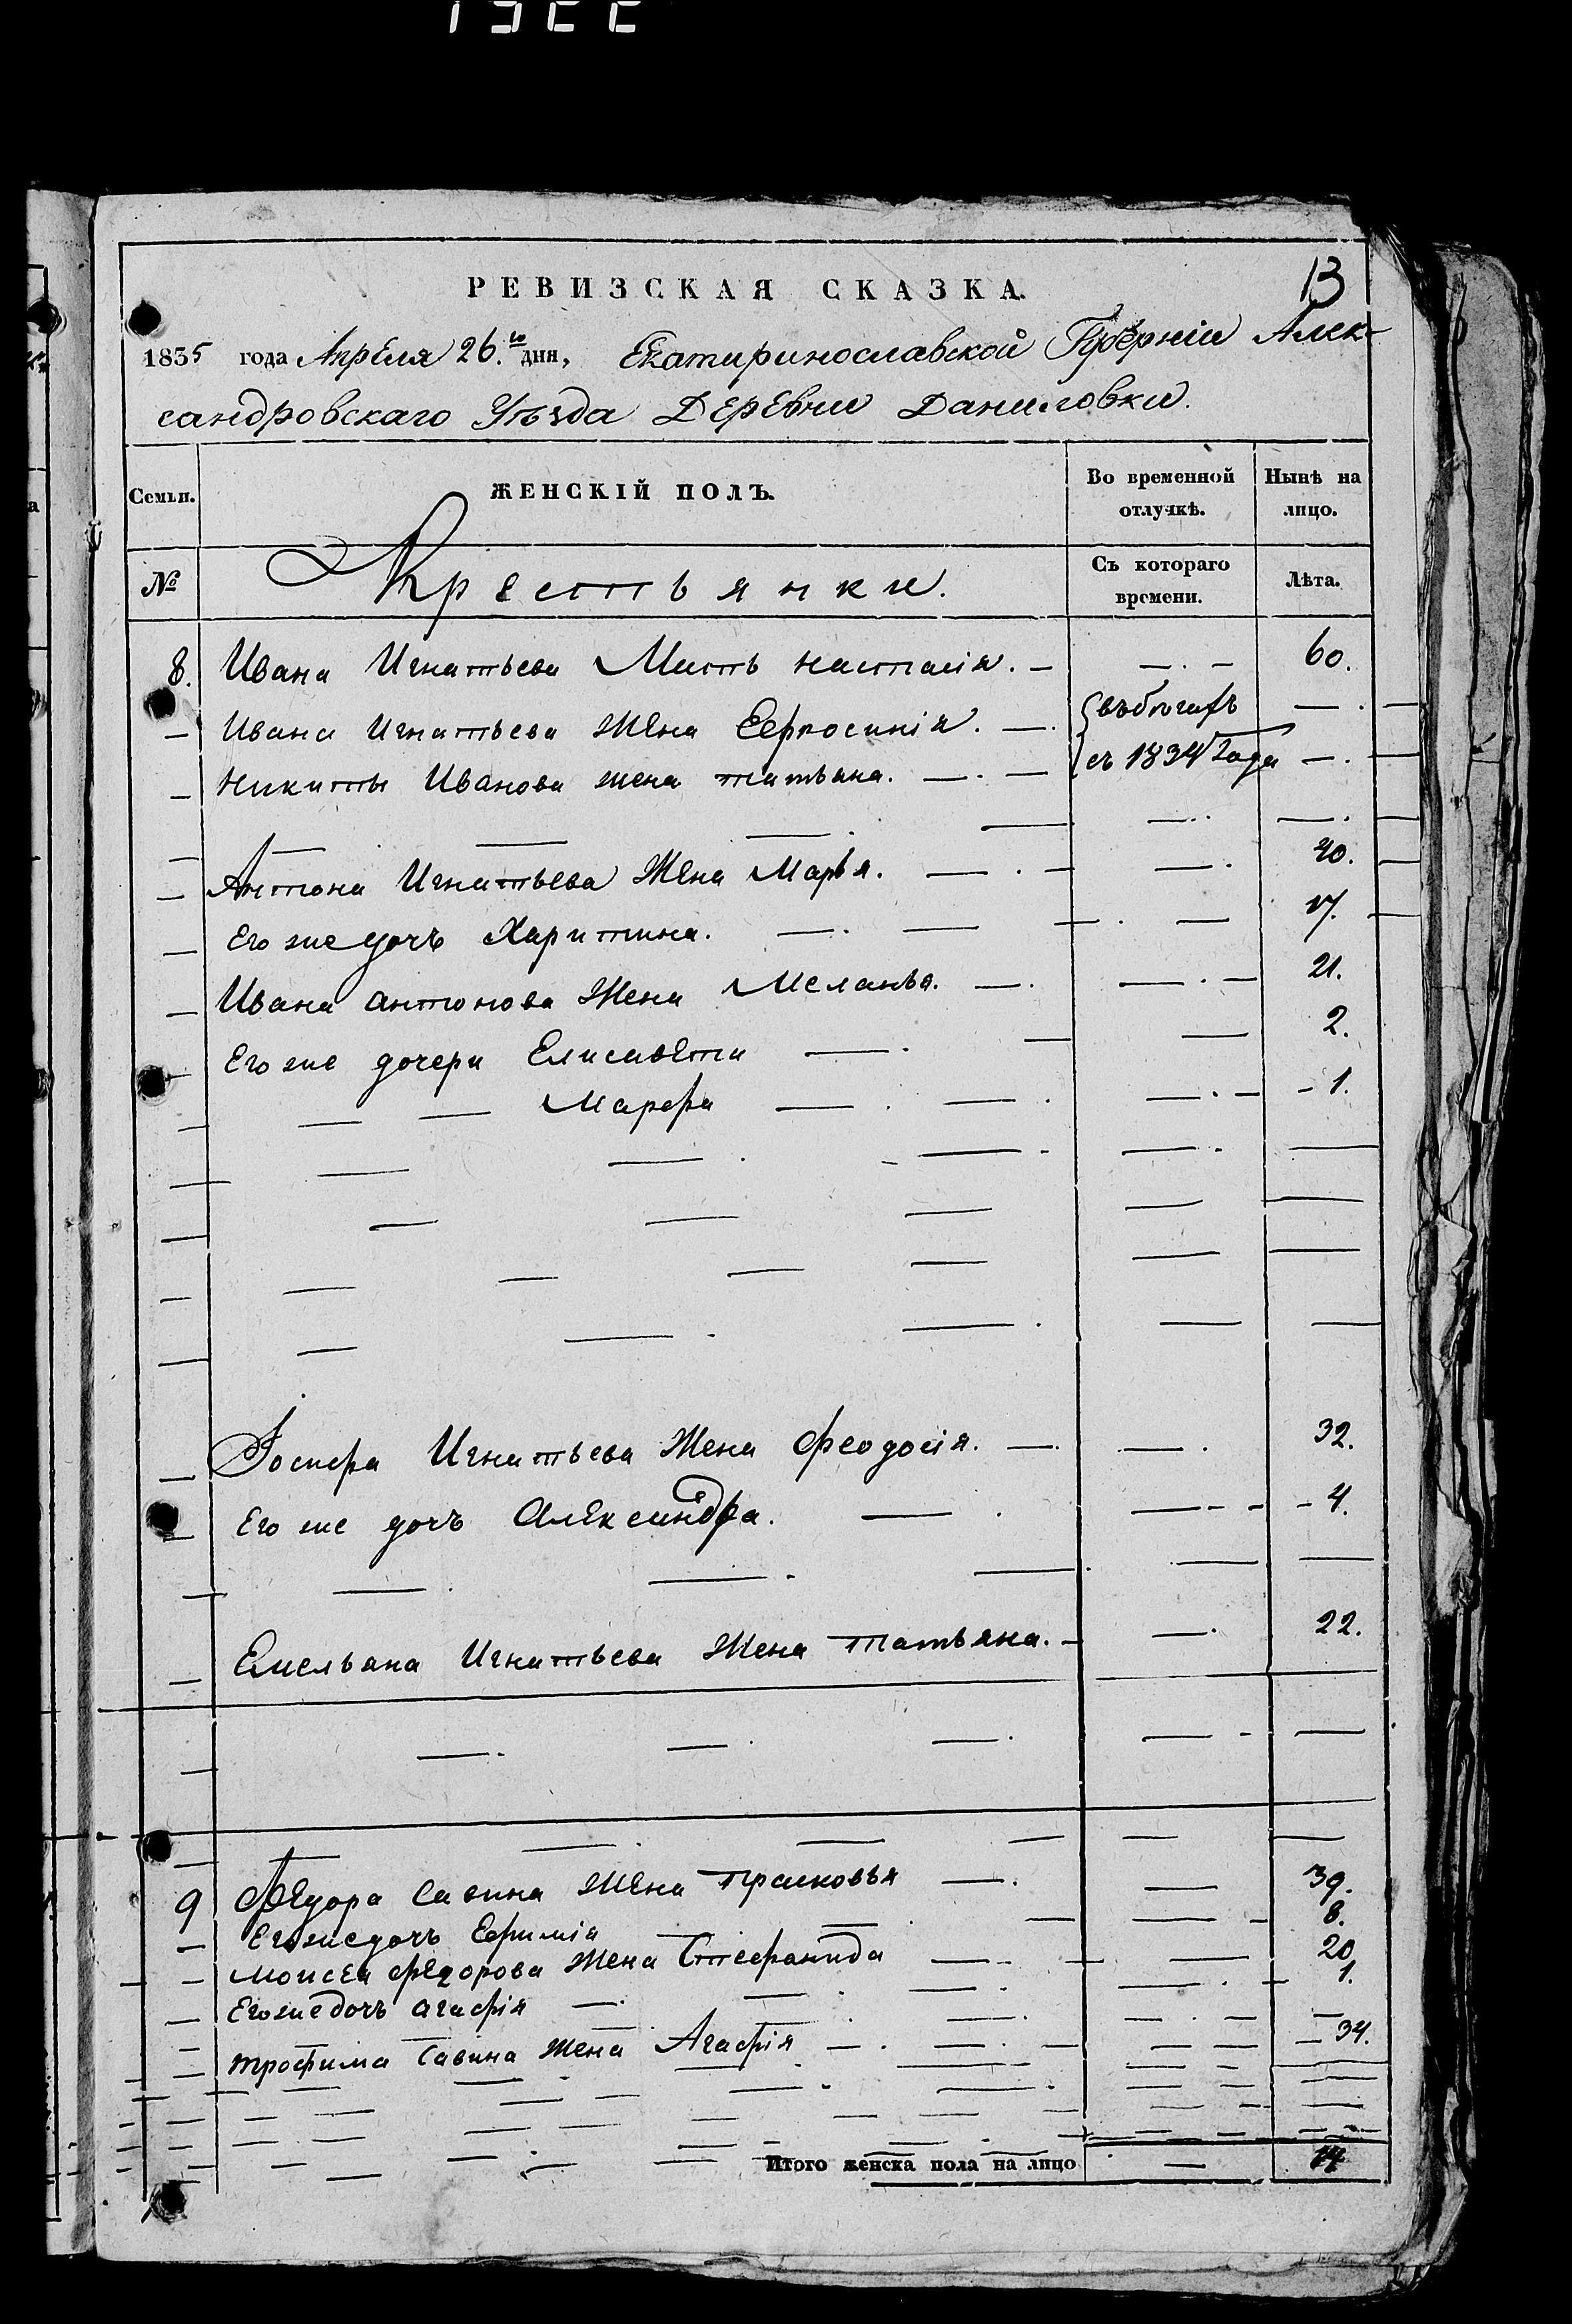 13
РЕВИЗСКАЯ СКАЗКА.
1835 года Апреля 26.го дня, Екатиринославской Губернiи Алек-
сандровскаго Уѣзда Деревни Даниловки.
Семьи. ЖЕНСКІЙ ПОЛЪ. Во временной отлучкѣ. Нынѣ на лицо.
№ Крестьянки. Съ котораго времени. Лѣта.
8. Ивана Игнатьева Мать настасiя. — — . — 60.
— Ивана Игнатьева Жена Ефросинiя. — . въ бѣгахъ — .
— Никиты Иванова жена татьяна. — . — съ 1834 Года — .
— Антона Игнатьева Жена Марья. — . — — . 40.
— Его же дочь Харитина. — . — — . — 17.
— Ивана антонова Жена Меланья. — . — . — 21.
— Его же дочери Елисавета — . — — 2.
— — — Марфа — . — . — . — - 1.
— Iосифа Игнатьева Жена феодосiя. — . — . 32.
— Его же дочь Александра. — . — - - - 4.
— Емельяна Игнатьева Жена татьяна. — — . 22.
9 Федора Савина Жена прасковья — . — 39.
— Его же дочь Ефимiя — — . — — - 8.
— Моисея федорова Жена Стефанида — - — 20
— Его же дочь агафiя — . — . — — . — 1.
— трофима Савина Жена Агафiя — . — . — — — — 34.
Итого женска пола на лицо —